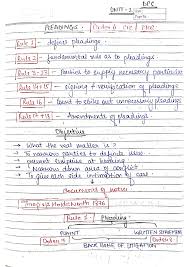 UNIT-2 DPC
PLEADINGS. Order 6 CPC 1908
Rule 1 - defines pleadings.
Rule 2 - fundamental rule as to pleadings.
Rule 3-13 - Parties to supply necessary particulars
Rule 14-15 - signing & verification of pleadings
Rule 16 - Court to strike out unnecessary pleadings
Rule 17-18 - Amendments of pleadings
Objective
→ What the real matter is?
→ To narrow parties to definite issues
→ prevent surprise at hearing
→ Narrows down area of conflict
→ To give each side intimation of case
Rule 1 Pleading
PLAINT WRITTEN STATEMENT
Order 7 Order 8
BACK BONE OF LITIGATION